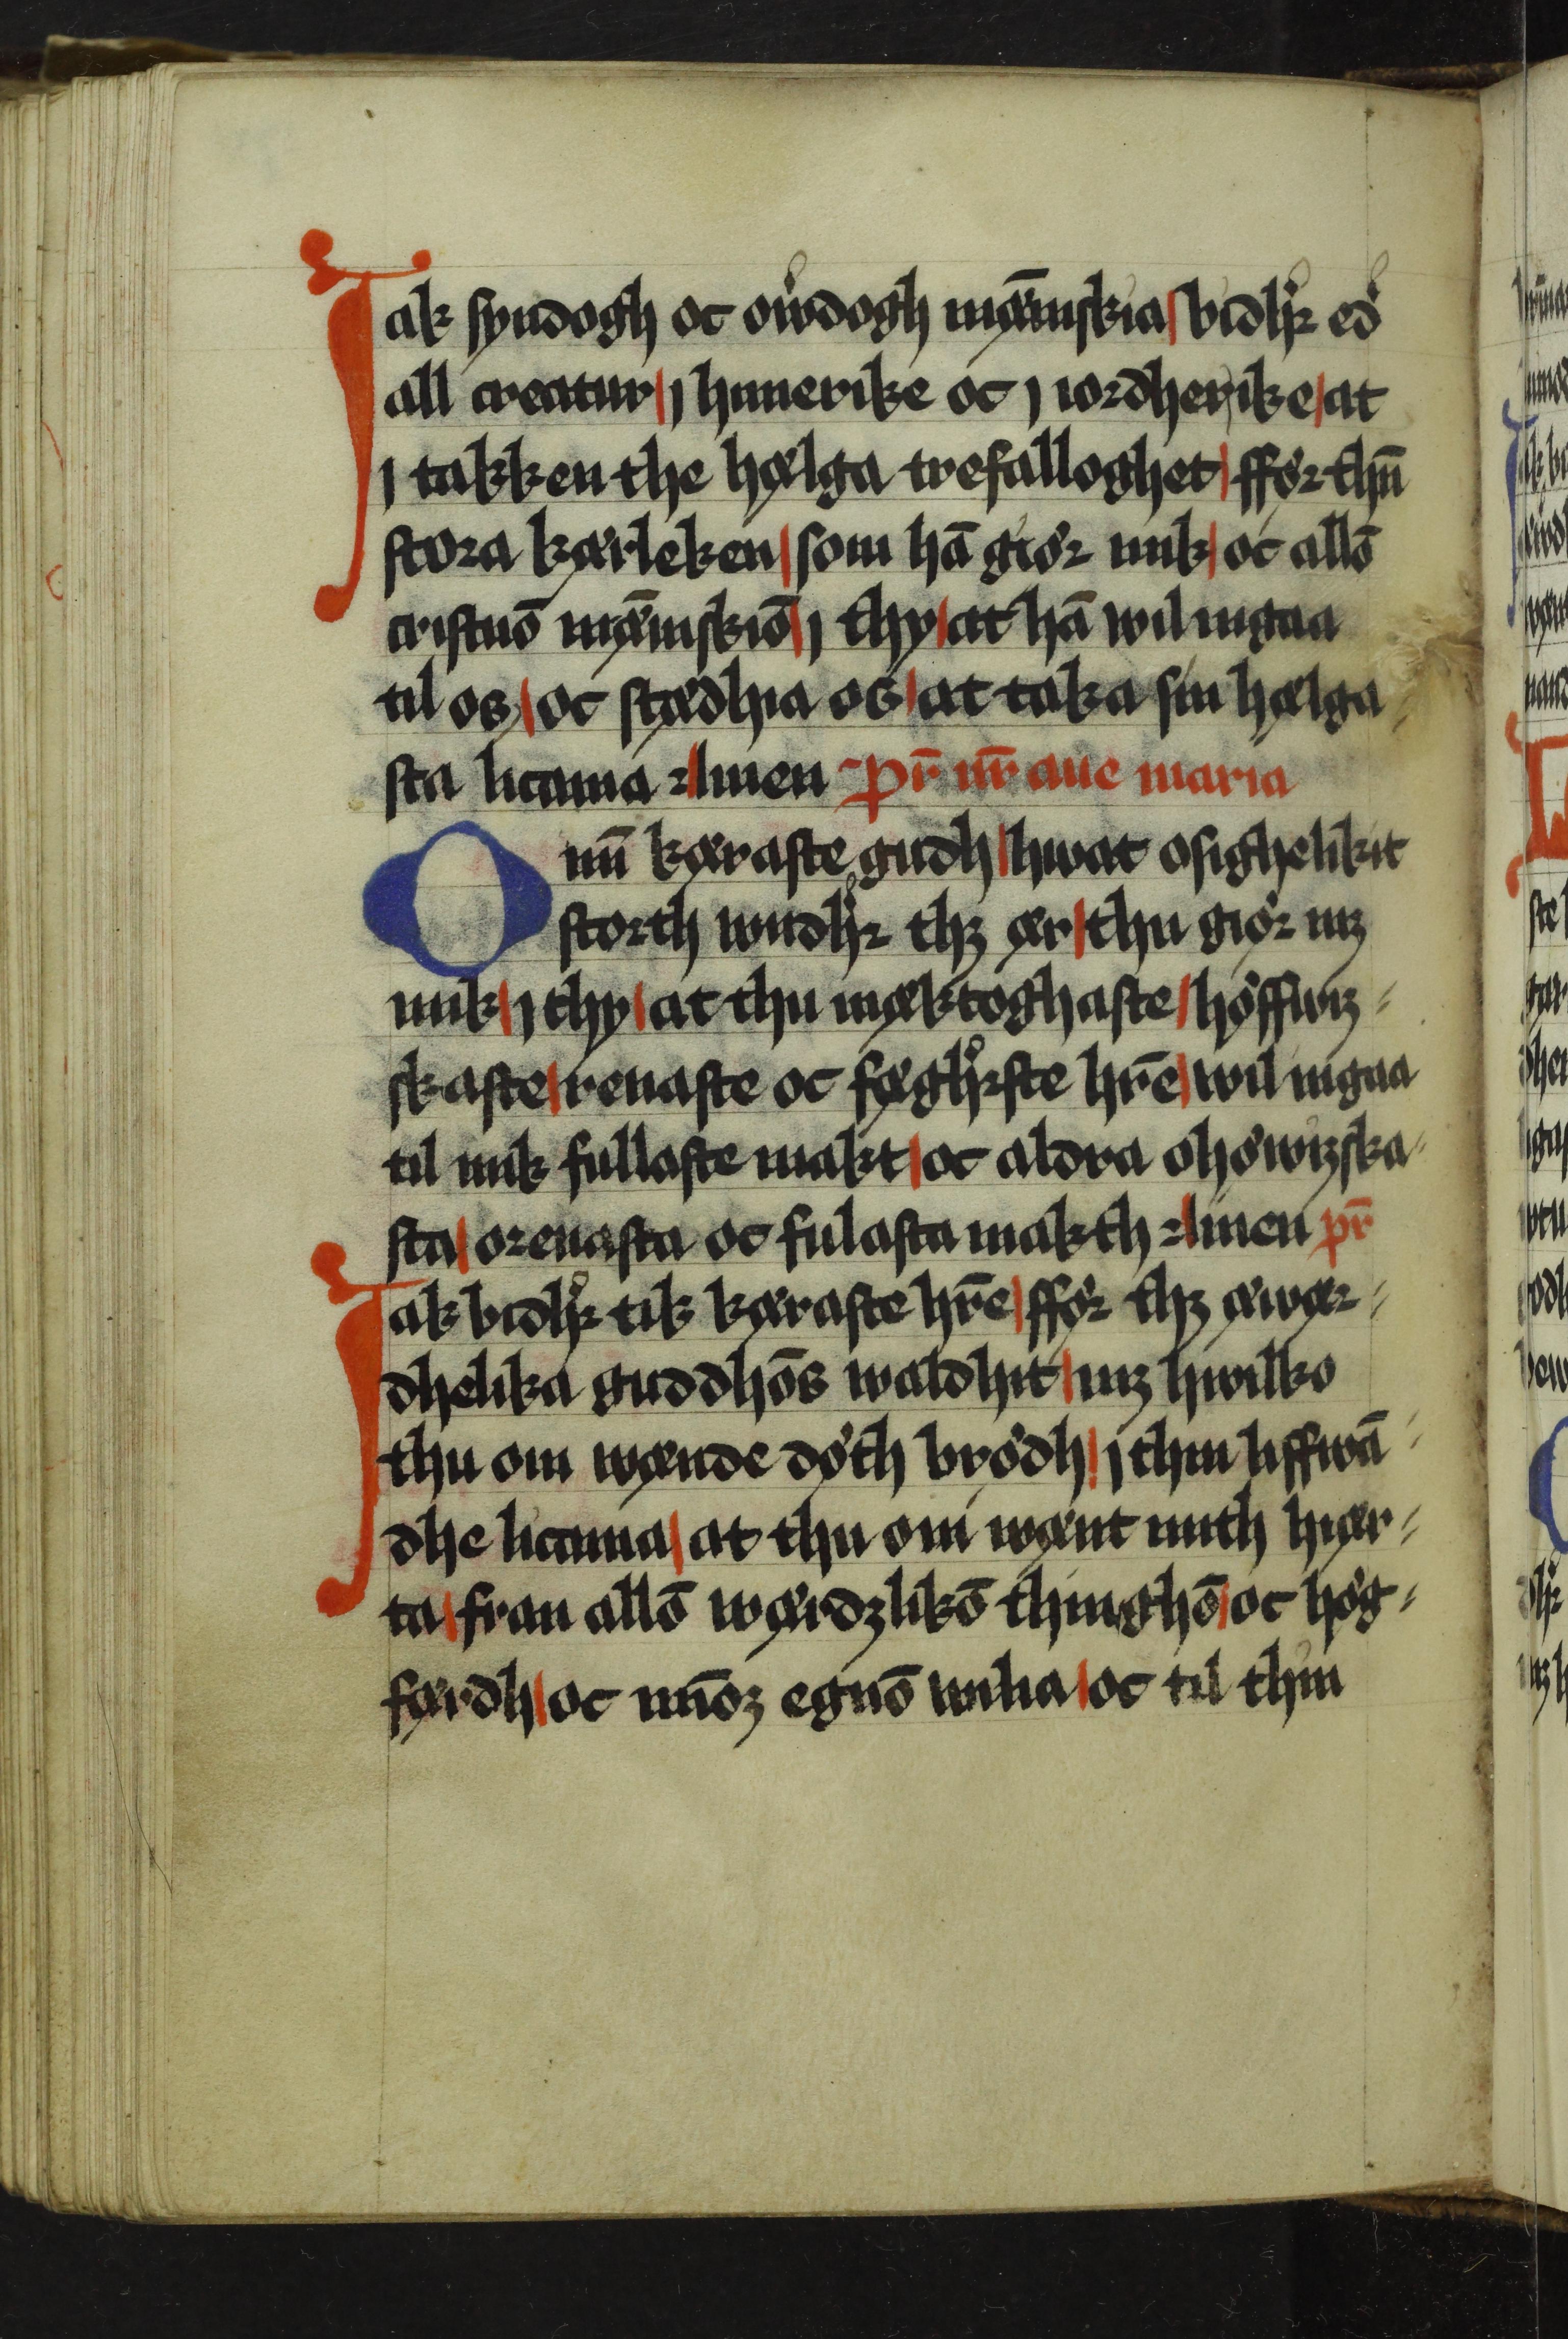 Jak syndogh oc ow͛dogh mæ̅niskia bidhꝛ͛ ed͛
all creatur j himerike oc j iordherike at
j takken the hælga trefalloghet ffør thn̄
stora kærleken som hā giør mik oc allō
cristnō mæ̅niskiō j thy at hā wil ingaa
til os oc stædhia os at taka sin hælga
sta licama Amen pr̄ nr̄ aue maria
O min̄ kæraste gudh hwat osighelikit
storth wndhꝛ͛ thz ær thu giør mz
mik j thy at thu mæktoghaste høffwiz-
skaste renaste oc fæghꝛ͛ste hr̄e wil ingaa
til mik fullaste makt oc aldra ohøwizska-
sta orenasta oc fulasta makth Amen pr̄
Jak bidhꝛ͛ tik kæraste hr̄e ffør thz æwær-
dhelika guddhō̄s waldhit mz hwilko
thu om wænde døth brødh j thin liffwā
dhe licama at thu om wænt mith hiær-
ta fran allō wærdzlikō thinghō oc høg-
færdh oc mīoz egnō wilia oc til thin